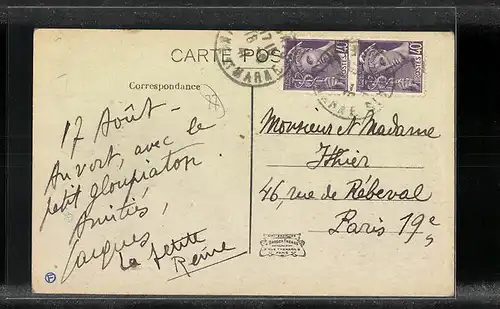 CARTE POS
Correspondance
17 Août -
Au vert, avec le
petit gloupiaton
Amitiés,
Jacques,
La petite
Reine
Monsieur et Madame
Ithier
46, rue de Rébeval
Paris 19e
POSTES 40
POSTES 40
MARNE